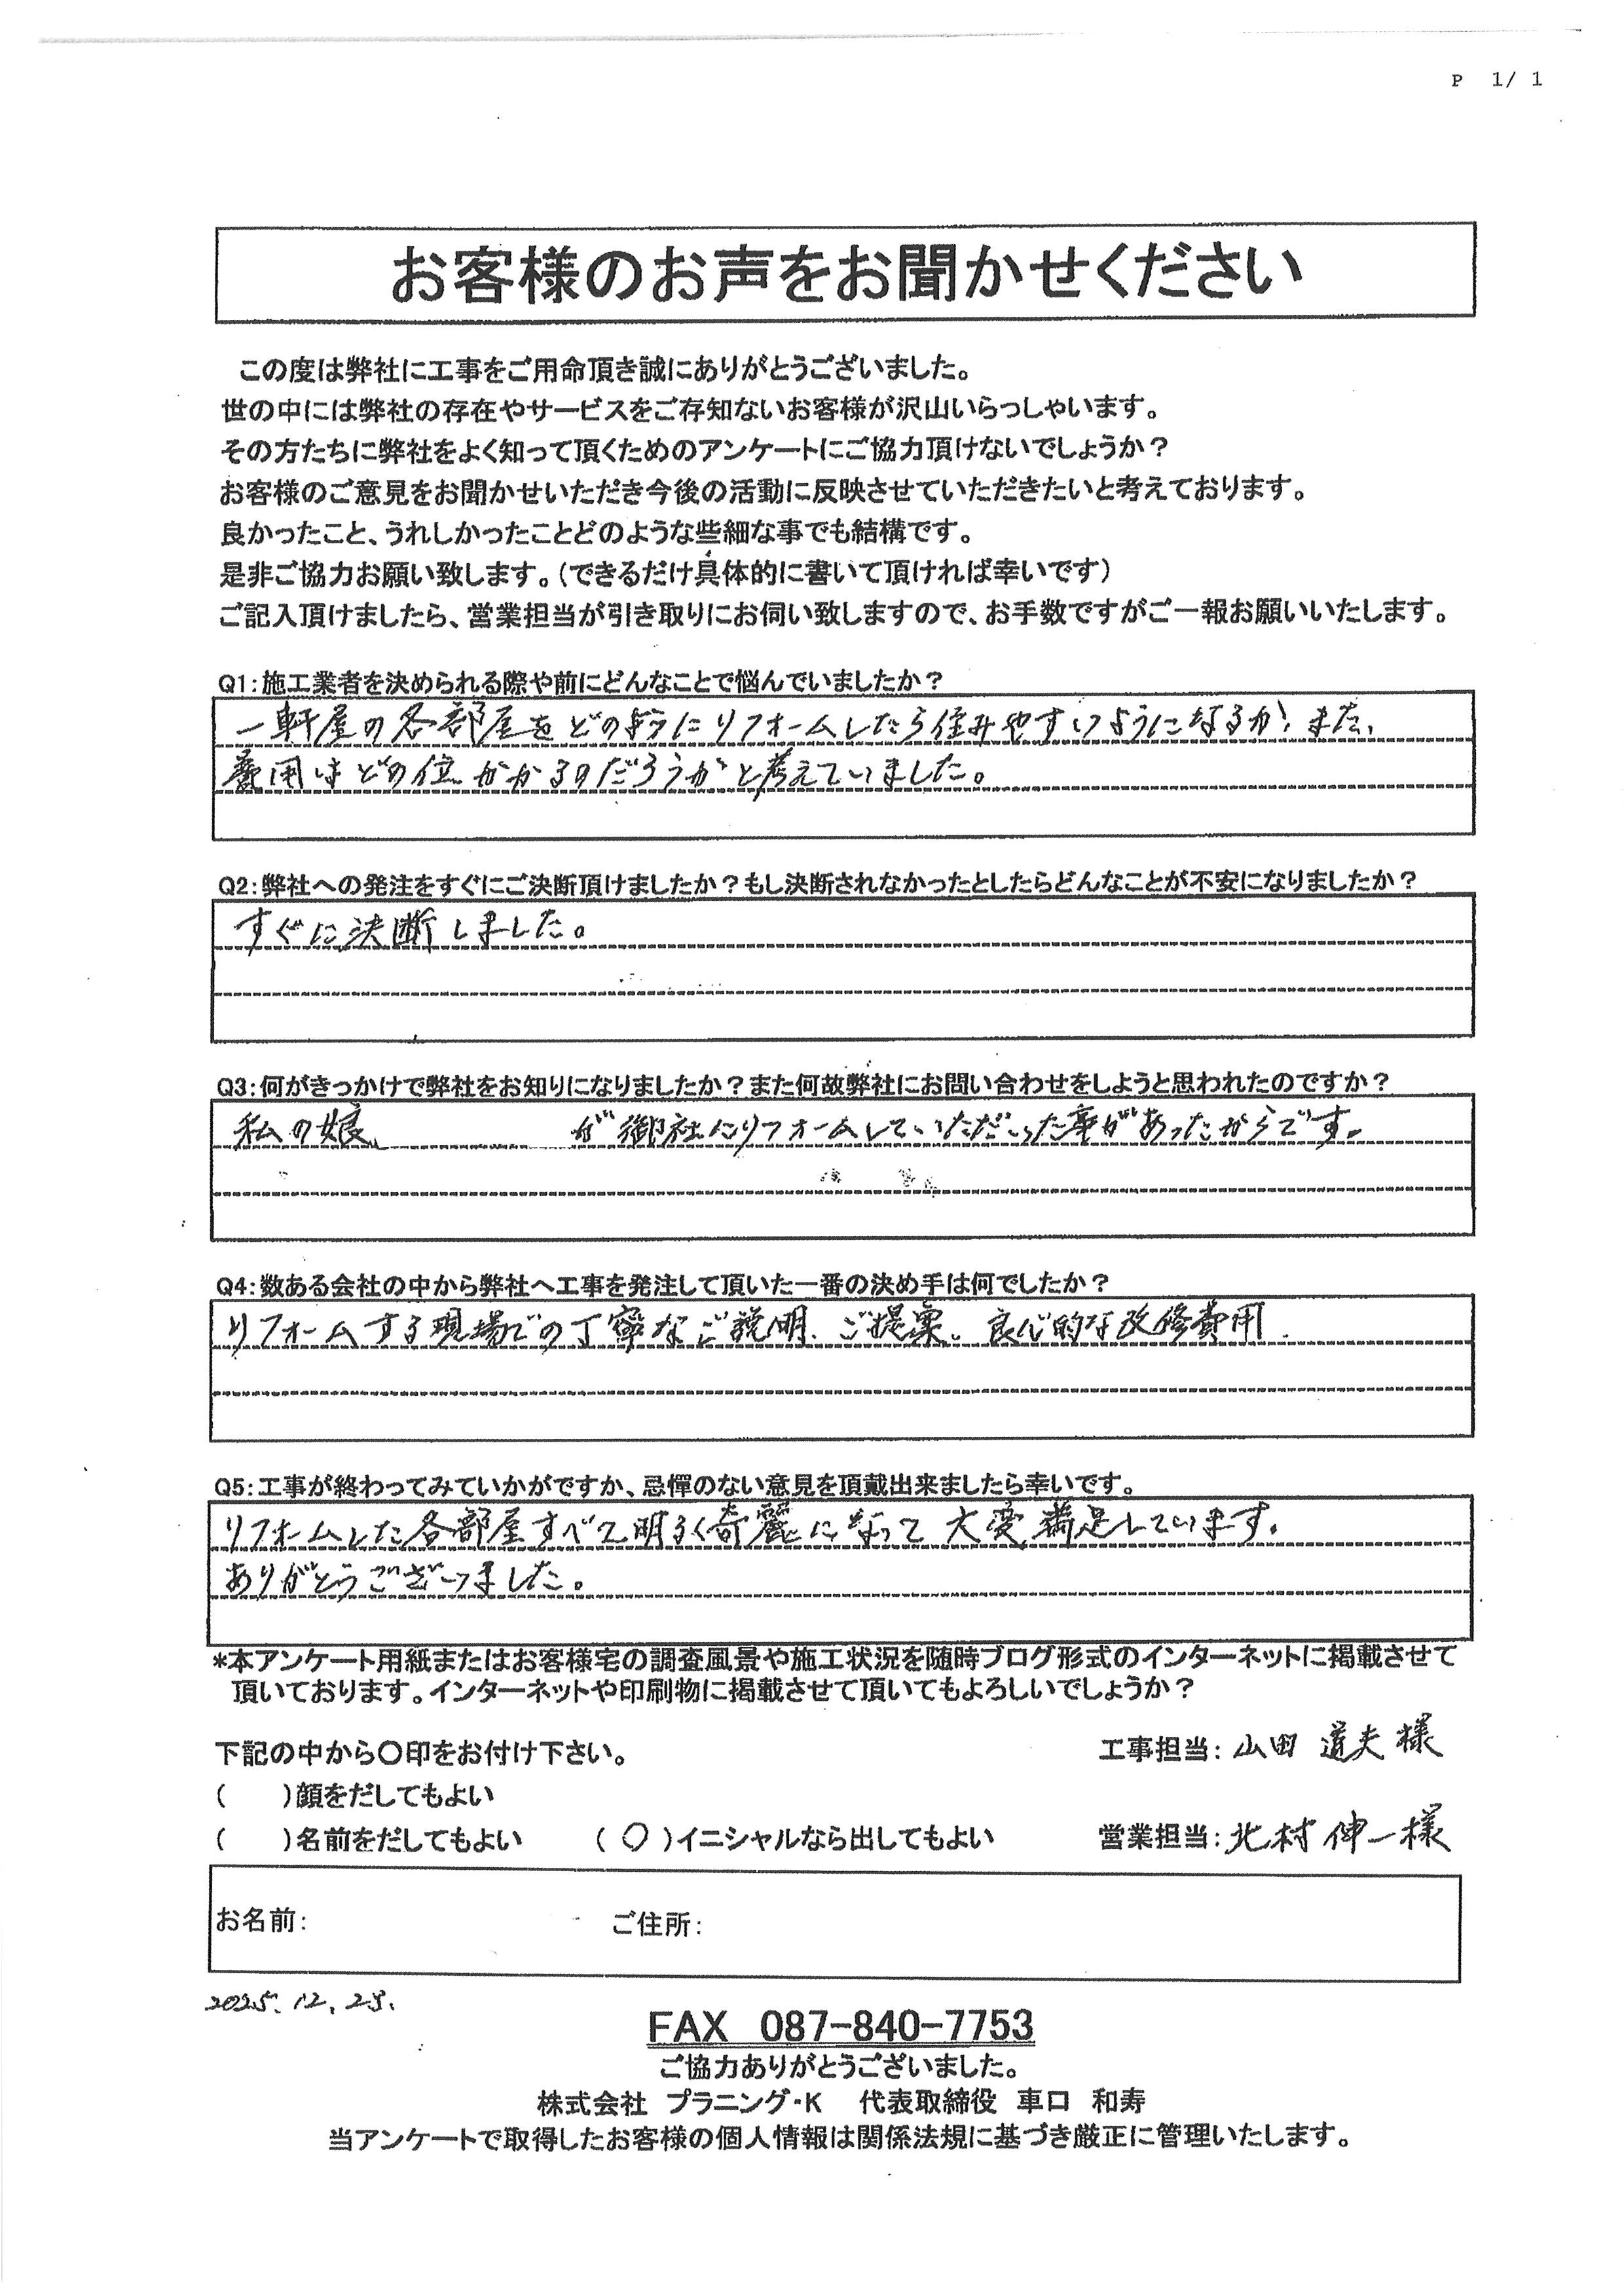 P 1/ 1
お客様のお声をお聞かせください
この度は弊社に工事をご用命頂き誠にありがとうございました。
世の中には弊社の存在やサービスをご存知ないお客様が沢山いらっしゃいます。
その方たちに弊社をよく知って頂くためのアンケートにご協力頂けないでしょうか？
お客様のご意見をお聞かせいただき今後の活動に反映させていただきたいと考えております。
良かったこと、うれしかったことどのような些細な事でも結構です。
是非ご協力お願い致します。（できるだけ具体的に書いて頂ければ幸いです）
ご記入頂けましたら、営業担当が引き取りにお伺い致しますので、お手数ですがご一報お願いいたします。
Q1：施工業者を決められる際や前にどんなことで悩んでいましたか？
一軒屋の各部屋をどのようにリフォームしたら住みやすいようになるか、また、
費用はどの位かかるのだろうかと考えていました。
Q2：弊社への発注をすぐにご決断頂けましたか？もし決断されなかったとしたらどんなことが不安になりましたか？
すぐに決断しました。
Q3：何がきっかけで弊社をお知りになりましたか？また何故弊社にお問い合わせをしようと思われたのですか？
私の娘 が御社にリフォームしていただいた事があったからです。
Q4：数ある会社の中から弊社へ工事を発注して頂いた一番の決め手は何でしたか？
リフォームする現場での丁寧なご説明、ご提案、良心的な改修費用
Q5：工事が終わってみていかがですか、忌憚のない意見を頂戴出来ましたら幸いです。
リフォームした各部屋すべて明るく奇麗になって大変満足しています。
ありがとうございました。
*本アンケート用紙またはお客様宅の調査風景や施工状況を随時ブログ形式のインターネットに掲載させて
頂いております。インターネットや印刷物に掲載させて頂いてもよろしいでしょうか？
下記の中から〇印をお付け下さい。 工事担当：山田 道夫様
（ ）顔をだしてもよい
（ ）名前をだしてもよい （〇）イニシャルなら出してもよい 営業担当：北村 伸一様
お名前： ご住所：
2025.12.28.
FAX 087-840-7753
ご協力ありがとうございました。
株式会社 プラニング・K 代表取締役 車口 和寿
当アンケートで取得したお客様の個人情報は関係法規に基づき厳正に管理いたします。